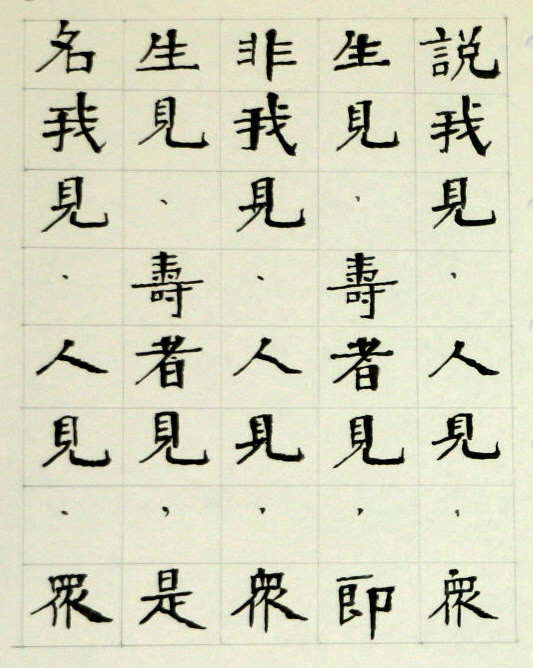 説我見、人見、衆
生見、壽者見、即
非我見、人見、衆
生見、壽者見，是
名我見、人見、眾